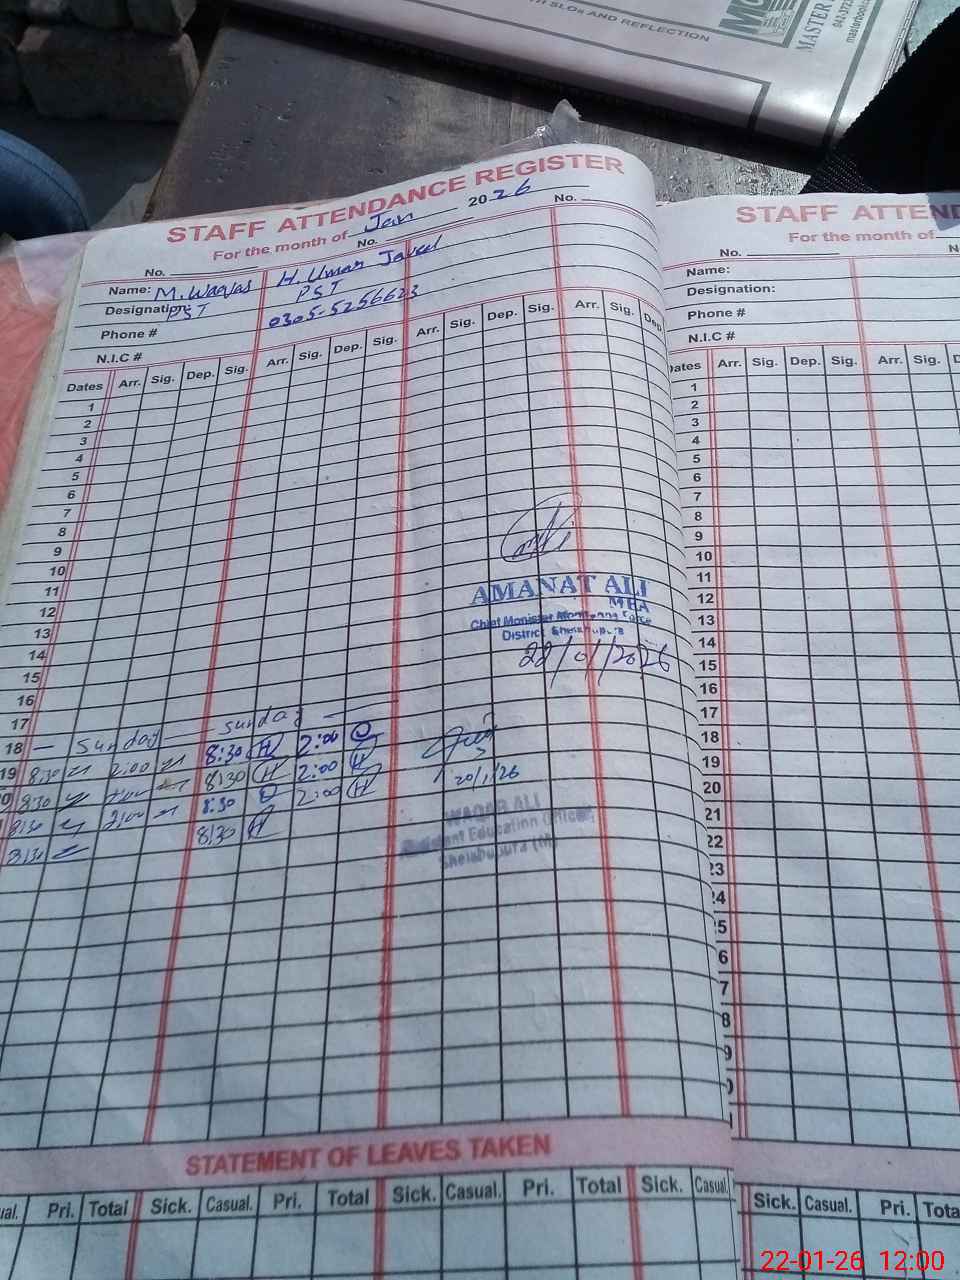 TH SLOs AND REFLECTION
STAFF ATTENDANCE REGISTER
For the month of Jan 2026
No. No. No.
Name: M. Waqas H. Umar Javed
Designation: PST PST
Phone # 0305-5256623
N.I.C #
Dates Arr. Sig. Dep. Sig. Arr. Sig. Dep. Sig. Arr. Sig. Dep. Sig. Arr. Sig. Dep
1
2
3
4
5
6
7
8
9
10
11
12
13
14
15
16
17
18 — Sunday — Sunday —
19 8:30 2:00 8:30 H 2:00
8:30 8:30 H 2:00 H
8:30 2:00 8:30 2:00 H
8:30 8:30 H
AMANAT ALI
MEA
Chief Minister Monitoring Force
District Sheikhupura
22/01/2026
20/1/26
WAQAR ALI
Assistant Education Officer
Sheikhupura (M)
STATEMENT OF LEAVES TAKEN
Pri. Total Sick. Casual. Pri. Total Sick. Casual. Pri. Total Sick. Casual.
STAFF ATTEND
For the month of
No.
Name:
Designation:
Phone #
N.I.C #
Dates Arr. Sig. Dep. Sig. Arr. Sig.
1
2
3
4
5
6
7
8
9
10
11
12
13
14
15
16
17
18
19
20
21
22
23
24
Sick. Casual. Pri. Tota
22-01-26 12:00